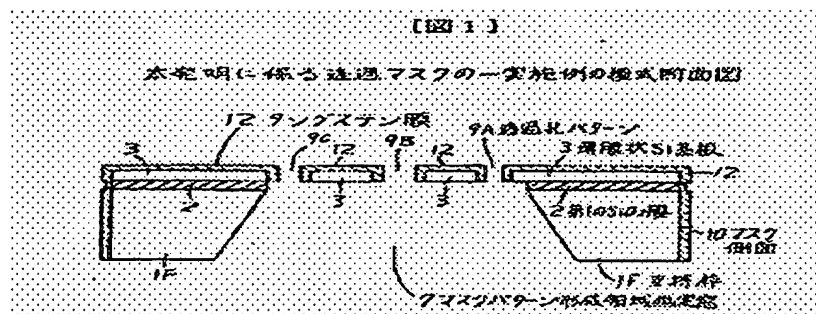 【図1】
本発明に係る透過マスクの一実施例の模式断面図
12 タングステン膜
9C
9B
9A 透過孔パターン
3
12
12
3 薄膜状Si基板
12
2
3
3
2 第1のSiO2膜
10 マスク
側面
1F
1F 支持枠
7 マスクパターン形成領域画定窓